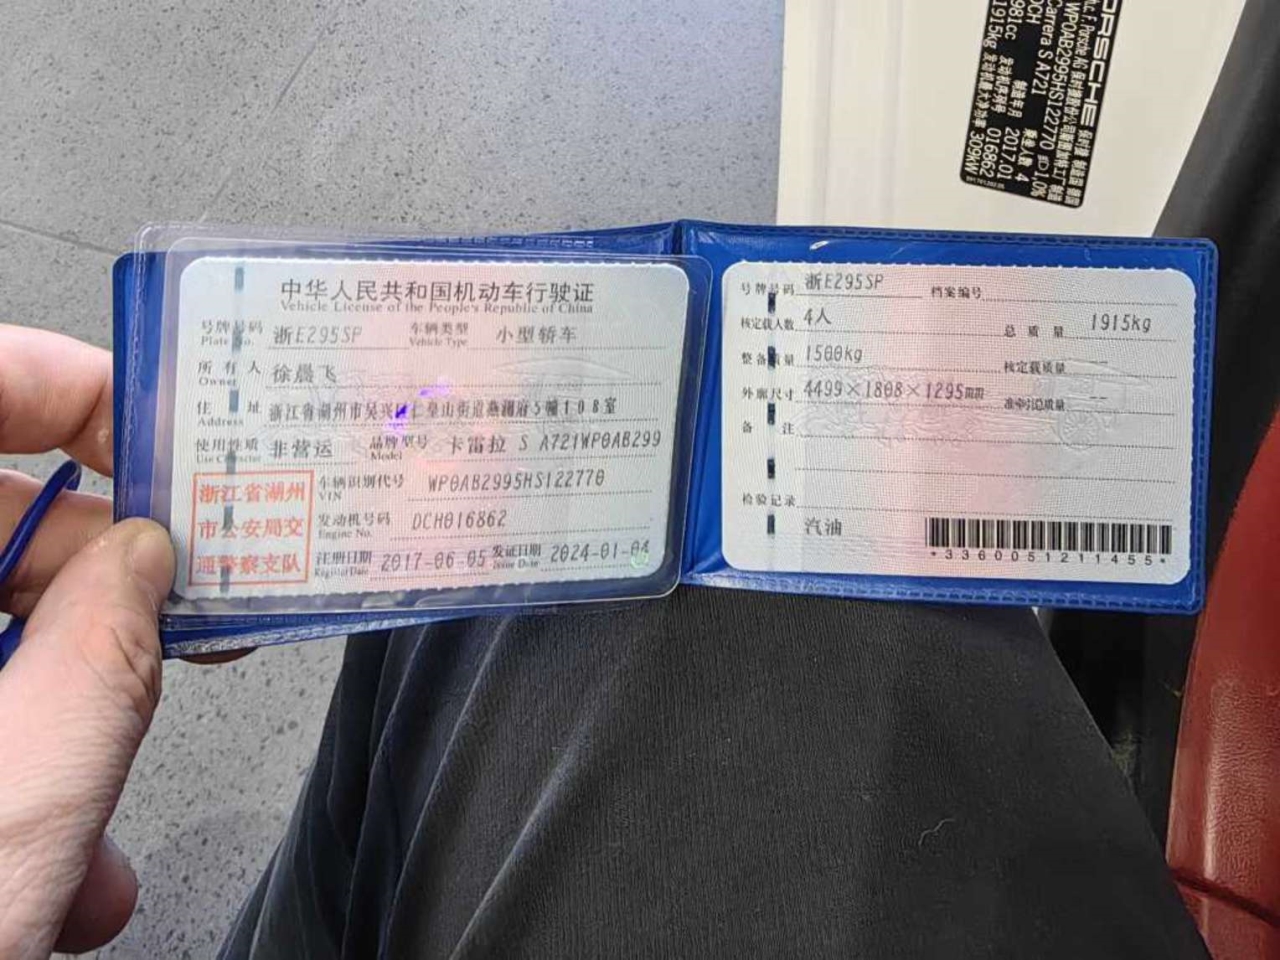 中华人民共和国机动车行驶证
Vehicle License of the People's Republic of China
号牌号码 浙E295SP 车辆类型 小型轿车
Plate No. Vehicle Type
所有人 徐晨飞
Owner
住址 浙江省湖州市吴兴区仁皇山街道燕澜府5幢108室
Address
使用性质 非营运 品牌型号 卡雷拉 S A721WP0AB299
Use Character Model
浙江省湖州
市公安局交
通警察支队
车辆识别代号 WP0AB2995HS122770
VIN
发动机号码 DCH016862
Engine No.
注册日期 2017-06-05 发证日期 2024-01-04
Register Date Issue Date
号牌号码 浙E295SP 档案编号
核定载人数 4人 总质量 1915kg
整备质量 1500kg 核定载质量 --
外廓尺寸 4499×1808×1295mm 准牵引总质量 --
备注
检验记录
汽油
*3360051211455*
PORSCHE 保时捷 制造国 德国
F. Porsche AG 保时捷股份公司斯图加特工厂 制造
WP0AB2995HS122770
Carrera S A721 乘坐人数 4
DCH 制造年月 2017.01
981cc 发动机序列号 016862
1915kg 发动机最大净功率 309kW